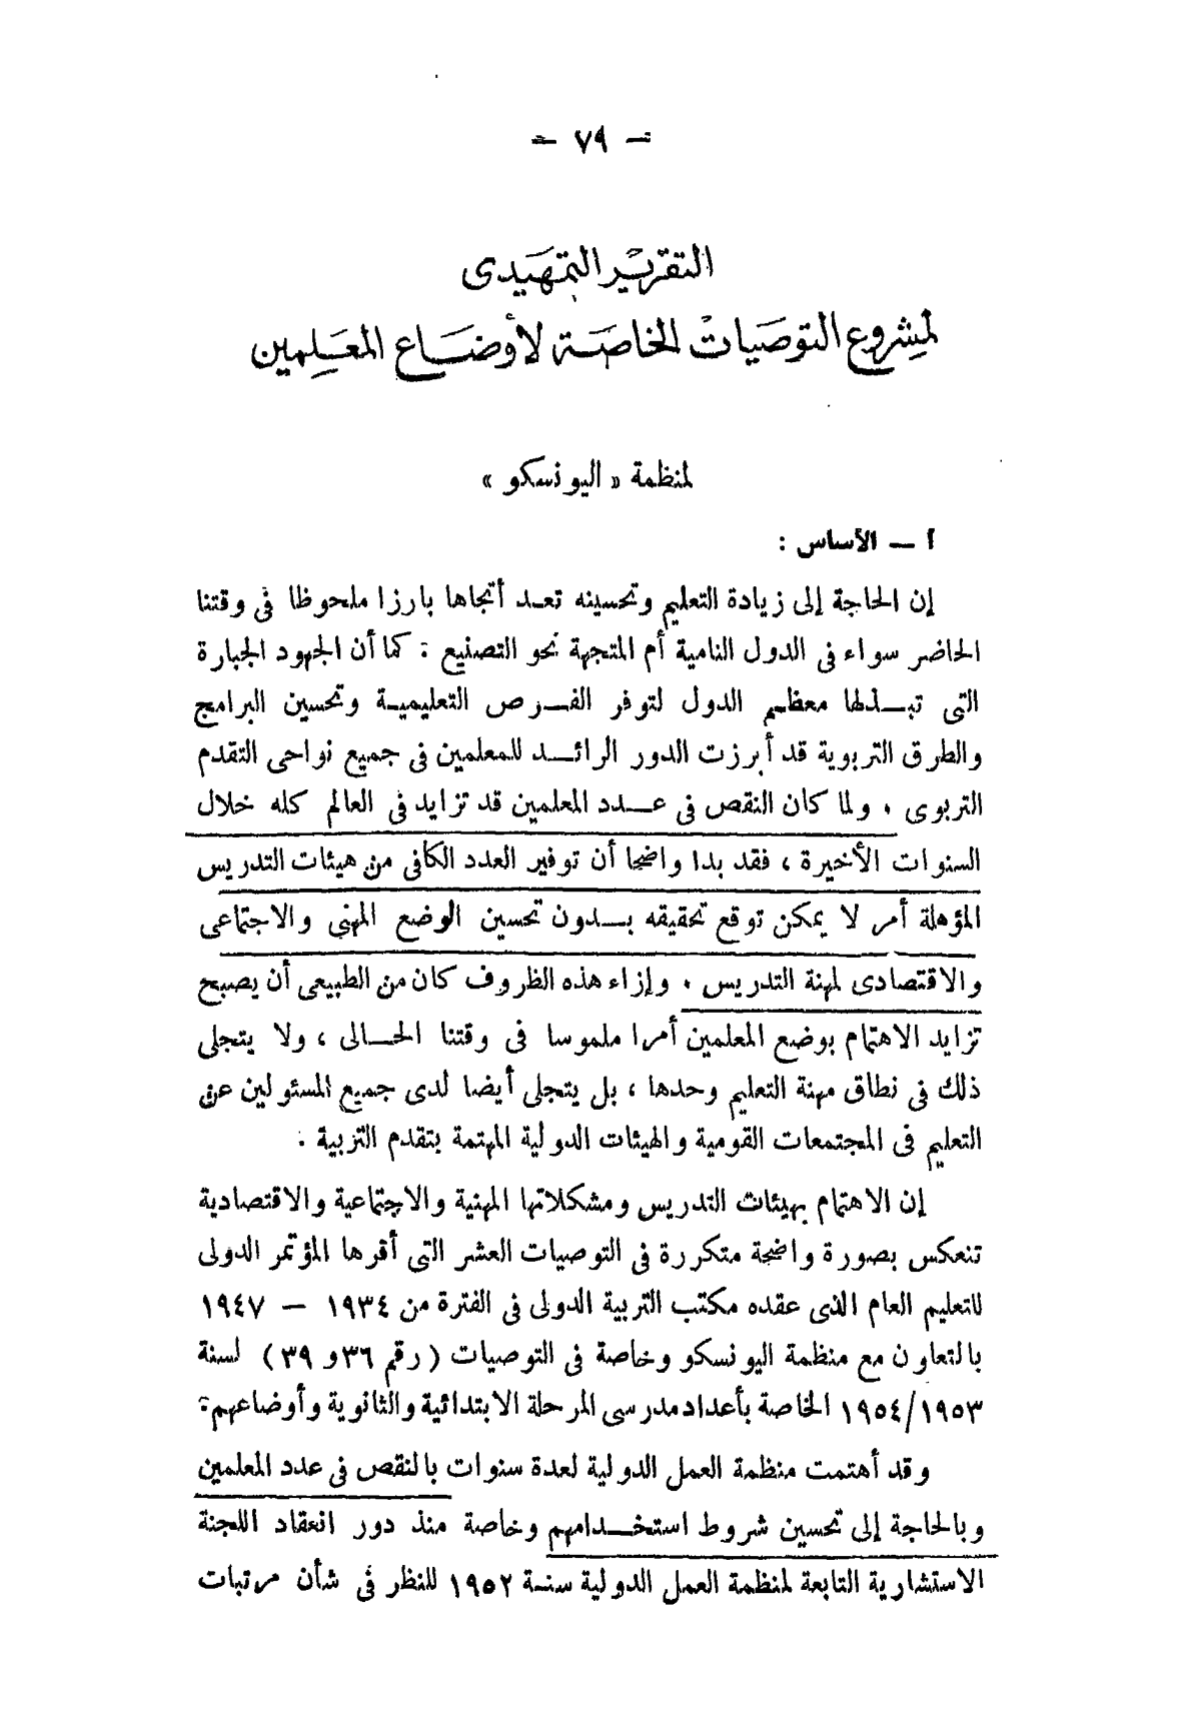 — ٧٩ —
التقرير التمهيدى
لمشروع التوصيات الخاصة لأوضاع المعلمين
لمنظمة « اليونسكو »
أ — الأساس :
إن الحاجة إلى زيادة التعليم وتحسينه تعد أتجاها بارزا ملحوظا فى وقتنا
الحاضر سواء فى الدول النامية أم المتجهة نحو التصنيع . كما أن الجهود الجبارة
التى تبذلها معظم الدول لتوفر الفرص التعليمية وتحسين البرامج
والطرق التربوية قد أبرزت الدور الرائد للمعلمين فى جميع نواحى التقدم
التربوى . ولما كان النقص فى عدد المعلمين قد تزايد فى العالم كله خلال
السنوات الأخيرة ، فقد بدا واضحا أن توفير العدد الكافى من هيئات التدريس
المؤهلة أمر لا يمكن توقع تحقيقه بدون تحسين الوضع المهنى والاجتماعى
والاقتصادى لمهنة التدريس . وإزاء هذه الظروف كان من الطبيعى أن يصبح
تزايد الاهتمام بوضع المعلمين أمرا ملموسا فى وقتنا الحالى ، ولا يتجلى
ذلك فى نطاق مهنة التعليم وحدها ، بل يتجلى أيضا لدى جميع المسئولين عن
التعليم فى المجتمعات القومية والهيئات الدولية المهتمة بتقدم التربية .
إن الاهتمام بهيئات التدريس ومشكلاتها المهنية والاجتماعية والاقتصادية
تنعكس بصورة واضحة متكررة فى التوصيات العشر التى أقرها المؤتمر الدولى
للتعليم العام الذى عقده مكتب التربية الدولى فى الفترة من ١٩٣٤ — ١٩٤٧
بالتعاون مع منظمة اليونسكو وخاصة فى التوصيات ( رقم ٣٦ و ٣٩ ) لسنة
١٩٥٤/١٩٥٣ الخاصة بأعداد مدرسى المرحلة الابتدائية والثانوية وأوضاعهم .
وقد أهتمت منظمة العمل الدولية لعدة سنوات بالنقص فى عدد المعلمين
وبالحاجة إلى تحسين شروط استخدامهم وخاصة منذ دور انعقاد اللجنة
الاستشارية التابعة لمنظمة العمل الدولية سنة ١٩٥٢ للنظر فى شأن مرتبات